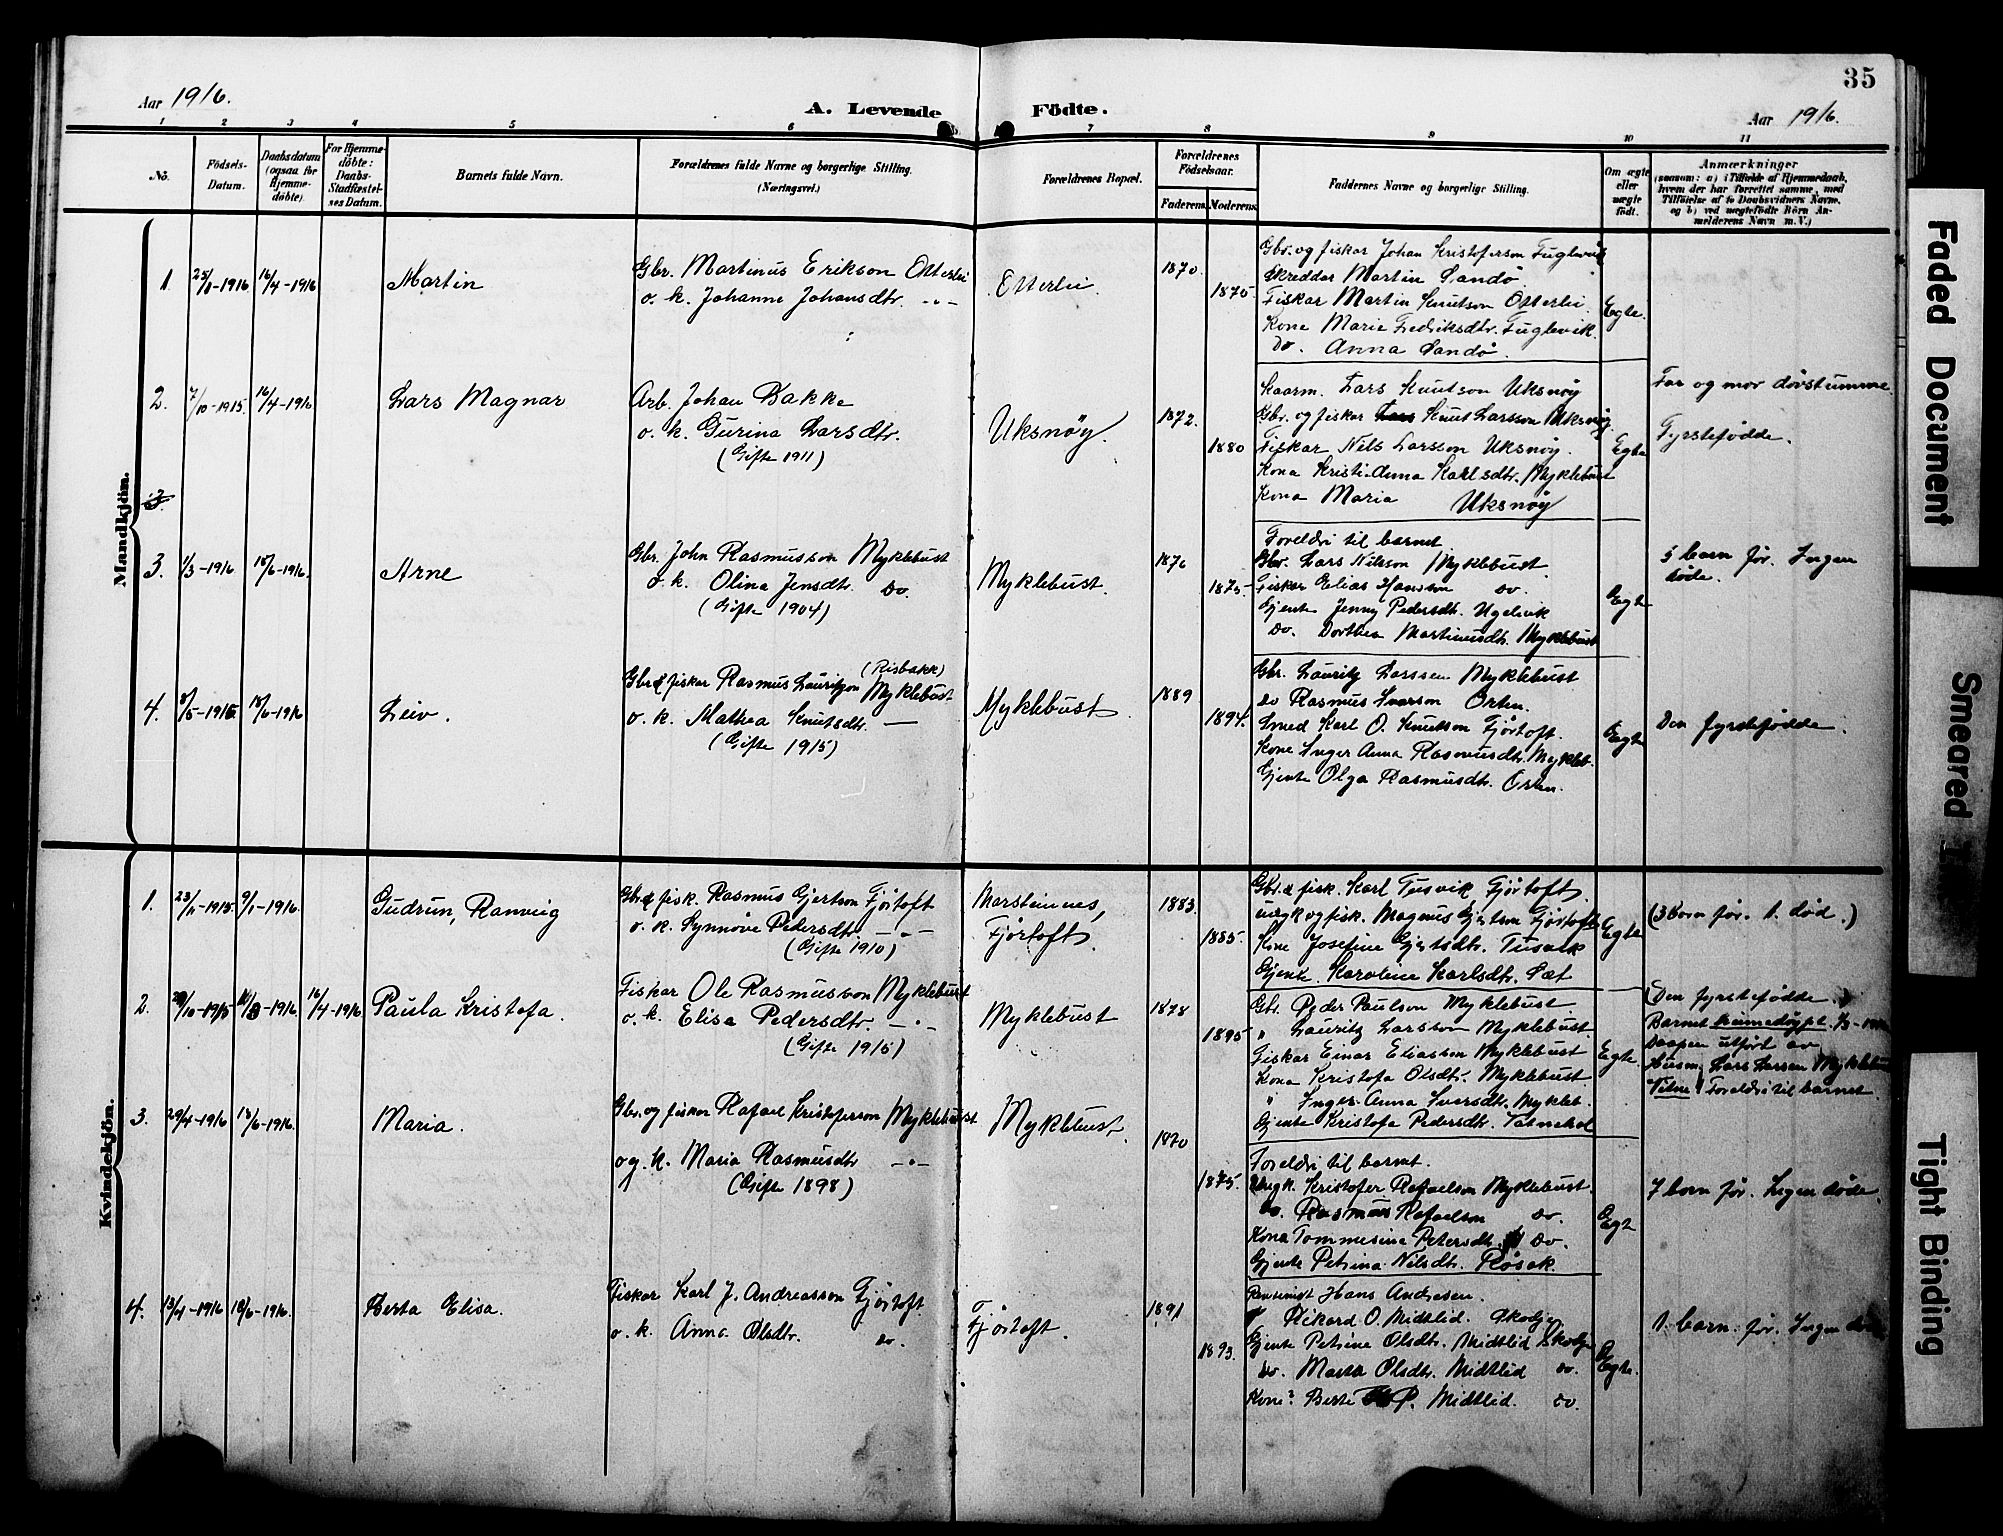 35
Aar 1916.
A. Levende Födte.
Aar 1916.
1 2 3 4 5 6 7 8 9 10 11
No.
Födsels-Datum.
Daabsdatum (ogsaa for Hjemme-døbte).
For Hjemme-døbte: Daabs-Stadfæstel-ses Datum.
Barnets fulde Navn.
Forældrenes fulde Navne og borgerlige Stilling. (Næringsvei.)
Forældrenes Bopæl.
Forældrenes Födselsaar.
Faderens. Moderens.
Faddernes Navne og borgerlige Stilling.
Om ægte eller uægte födt.
Anmærkninger
(saasom: a) i Tilfælde af Hjemmedaab, hvem der har forrettet samme, med Tilföielse af to Daabsvidners Navne, og b) ved uægtefödte Börn Anmelderens Navn m. V.)
Mandkjön.
1. 25/1-1916 16/4-1916 Martin
Gbr. Martinus Erikson Otterlei
o. k. Johanne Johansdtr. -"-
Otterlei.
1870.
1875.
Gbr. og fiskar Johan Kristoferson Fuglevik
Skreddar Martin Sandø
Fiskar Martin Knutson Otterlei
Kone Marie Fredriksdtr. Fuglevik.
Do. Anna Sandø.
Egte.
2. 7/10-1915. 16/4-1916 Lars Magnar
Arb. Johan Bakke
o. k. Gurina Larsdtr.
(Gifte 1911)
Uksnøy.
1872.
1880
Kaarm. Lars Knutson Uksnøy
Gbr. og fiskar Knut Larsson Uksnøy
Fiskar Nils Larsson Uksnøy.
Kona Kristi-Anna Karlsdtr. Myklebust
Kona Maria Uksnøy
Egte
Far og mor døvstumme
Fyrstefødde.
3.
3. 1/3-1916 18/6-1916. Arne
Gbr. John Rasmusson Myklebust
o. k. Olina Jensdtr. Do.
(Gifte 1904)
Myklebust.
1876
1875.
Foreldri til barnet
Gbr. Lars Nilsson Myklebust.
Fiskar Elias Hansson Do.
Gjente Jenny Pedersdtr. Ugelvik
Do. Dorthea Martinusdtr. Myklebust
Egte
5 barn før. Ingen døde.
4. 8/5-1916 18/6-1916 Leiv.
(Risbakk)
Gbr & fiskar Rasmus Lauritzon Myklebust
o. k. Mathea Knutsdtr. —
(Gifte 1915)
Myklebust
1889
1894.
Gbr. Lauritz Larssen Myklebust
Do Rasmus Ivarson Orten.
Smed Karl O. Knutson Fjørtoft.
Kone Inger Anna Rasmusdtr. Mykleb.
Gjente Olga Rasmusdtr. Orten.
Egte
Den fyrstefødde.
Kvindekjön.
1. 23/11-1915. 9/1-1916. Gudrun, Ranveig
Gbr & fisk. Rasmus Gjertson Fjørtoft
o. k. Synnøve Pedersdtr. -"-
(Gifte 1910)
Marsteinnes, Fjørtoft.
1883.
1885.
Gbr. & fisk. Karl Tusvik Fjørtoft.
ungk og fisk. Magnus Gjertson Fjørtoft
Kone Josefine Gjertsdtr. Tusvik
Gjente. Karoline Karlsdtr. Sæt
Egte
(3 born før. 1. død.)
2. /10-1915 /3-1916 16/4-1916 Paula Kristofa.
Fiskar Ole Rasmusson Myklebust
o. k. Elise Pedersdtr. -"-
(Gifte 1915)
Myklebust
1878
1895
Gbr. Peder Paulson Myklebust
" Lauritz Larsson Myklebust
Fiskar Einar Eliasson Myklebust
Kona Kristofa Olsdtr. Myklebust.
" Inger-Anna Iversdtr. Mykleb.
Gjente Kristofa Pedersdtr.
Egte
(Den fyrstefødde.)
Barnet heimedøypt.
Daapen utført av
Husm. Lars Larsen Myklebust
Vitne: Foreldri til barnet.
3. 29/4-1916 18/6-1916. Maria.
Gbr. og fiskar Rafael Kristoferson Myklebust
og. k. Maria Rasmusdtr -"-
(Gifte 1898)
Myklebust.
1870
1875.
Foreldri til barnet.
Ungk. Kristofer Rafaelson Myklebust.
Do. Rasmus Rafaelson Do.
Kona Tommesine Petersdtr. Do.
Gjente Petrina Nilsdtr. Røsok
Egte
7 born før. Ingen døde.
4. 13/4-1916 18/6-1916. Berta Elisa.
Fiskar Karl J. Andreasson Fjørtoft
o. k. Anna Olsdtr. Do.
Fjørtoft.
1891
1893.
Hans Andresen.
Rikard O. Midtlid. Skodje
Gjente Petrine Olsdtr. Midtlid Skodje
Do. Marta Olsdtr. Midtlid Do.
Kone: Berte P. Midtlid. Do.
Egte.
1. barn før. Ingen døde
Faded Document
Smeared
Tight Binding